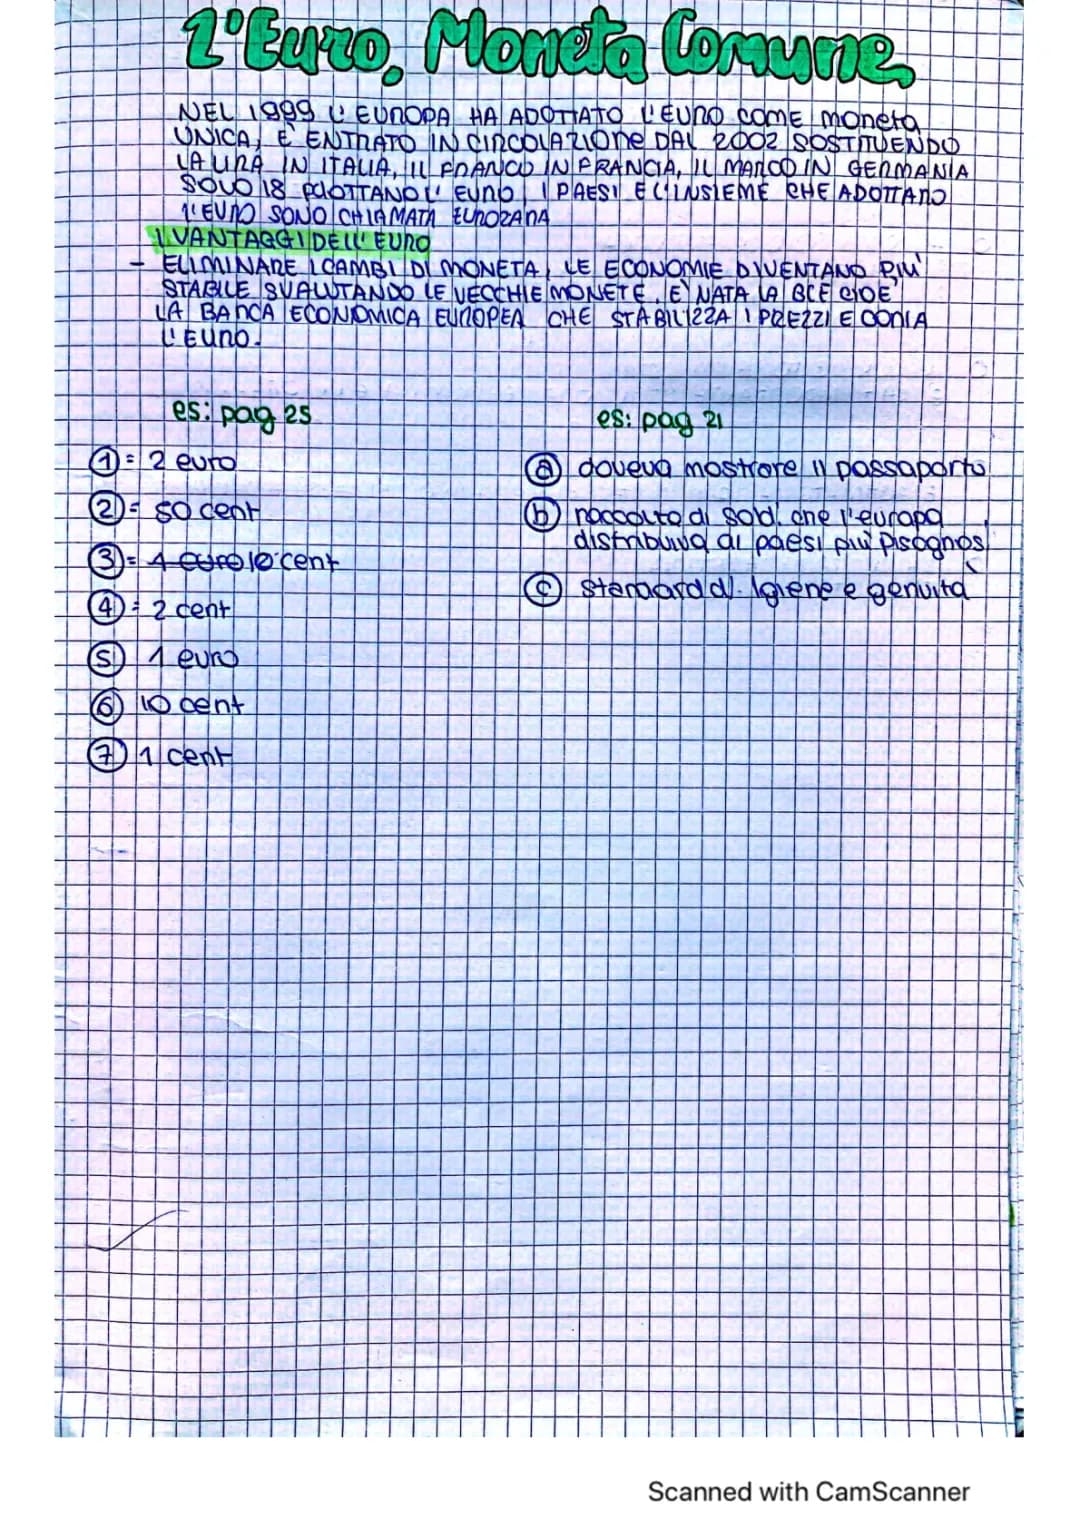 l'Euro, Moneta Comune
NEL 1999 L'EUROPA HA ADOTTATO L'EURO COME moneta
UNICA, È ENTRATO IN CIRCOLAZIONE DAL 2002 SOSTITUENDO
LA LIRA IN ITALIA, IL FRANCO IN FRANCIA, IL MARCO IN GERMANIA
SOLO 18 ADOTTANO L'EURO, I PAESI E L'INSIEME CHE ADOTTANO
l'EURO SONO CHIAMATA EUROZANA
I VANTAGGI DELL'EURO
- ELIMINARE I CAMBI DI MONETA, LE ECONOMIE DIVENTANO PIÙ
STABILE SVALUTANDO LE VECCHIE MONETE. È NATA LA BCE CIOE'
LA BANCA ECONOMICA EUROPEA CHE STABILIZZA I PREZZI E CONIA
L'EURO.
es: pag 25
1 = 2 euro
2 = 50 cent
3 = 1 euro 10 cent
4 = 2 cent
5 1 euro
6 10 cent
7 1 cent
es: pag 21
a doveva mostrare il passaporto
b raccolta di soldi che l'europa
distribuiva ai paesi più bisognosi
c standard di igiene e genuita
Scanned with CamScanner